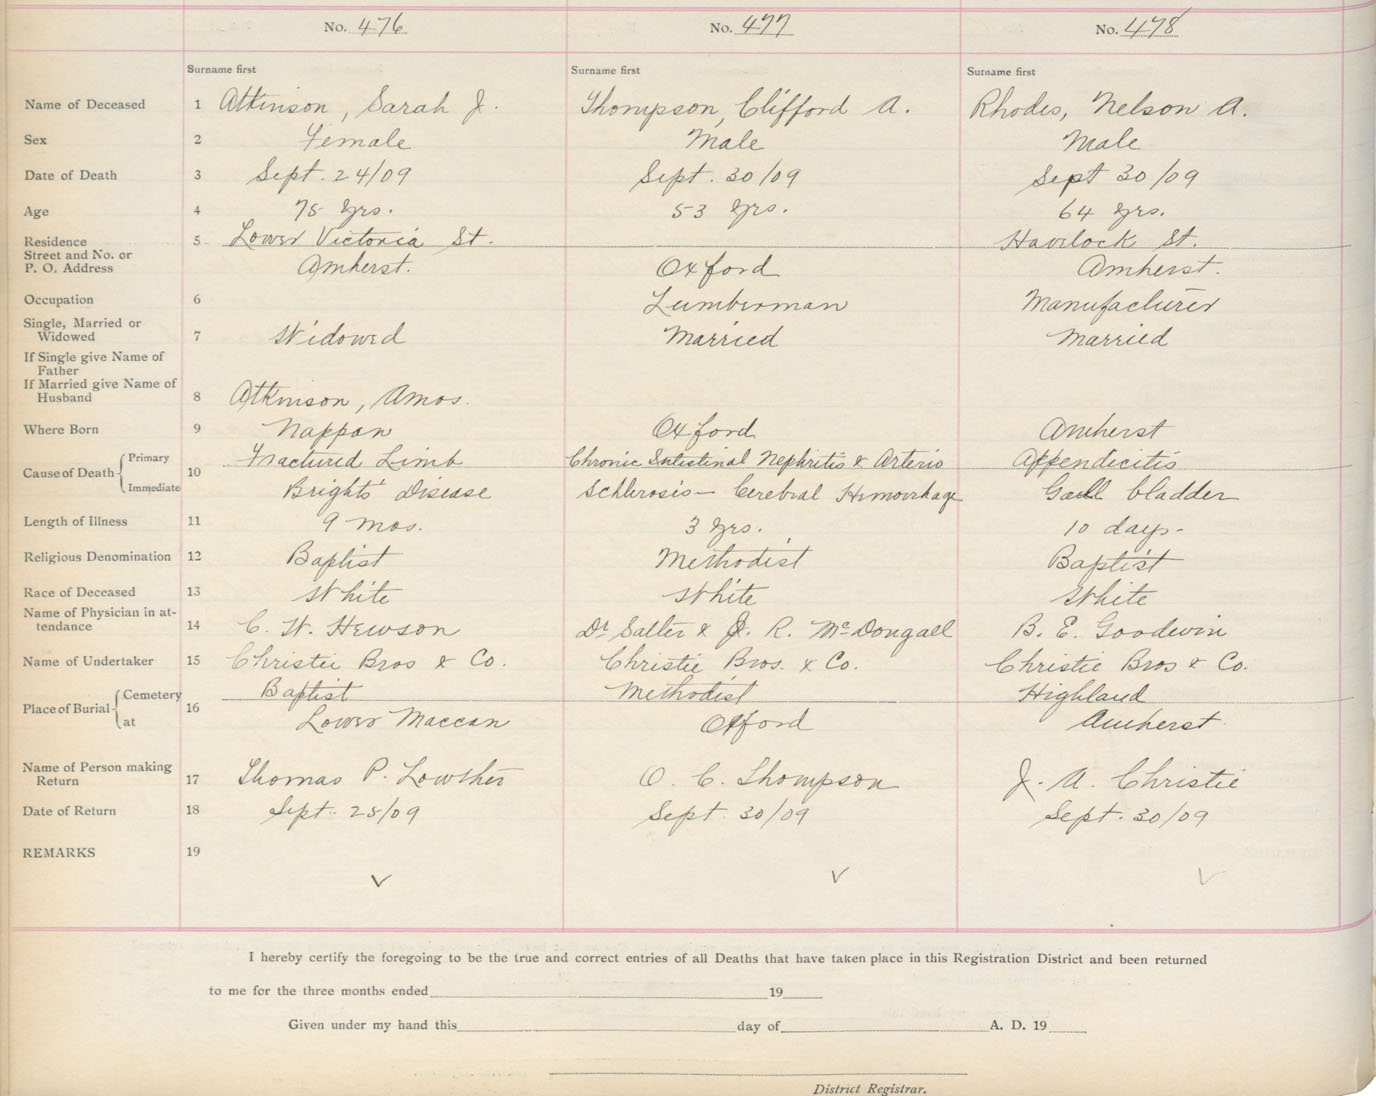 No. 476 No. 477 No. 478
Surname first Surname first Surname first
Name of Deceased 1 Atkinson, Sarah J. Thompson, Clifford A. Rhodes, Nelson A.
Sex 2 Female Male Male
Date of Death 3 Sept. 24/09 Sept. 30/09 Sept 30/09
Age 4 75 yrs. 53 yrs. 64 yrs.
Residence 5 Lower Victoria St. Havelock St.
Street and No. or
P. O. Address Amherst. Oxford Amherst.
Occupation 6 Lumberman Manufacturer
Single, Married or
Widowed 7 Widowed Married Married
If Single give Name of
Father
If Married give Name of
Husband 8 Atkinson, Amos.
Where Born 9 Nappan Oxford Amherst
Cause of Death Primary 10 Fractured Limb Chronic Intestinal Nephritis & Arterio Appendicitis
Immediate Brights' Disease Schlerosis — Cerebral Hemorrhage Gall bladder
Length of Illness 11 9 mos. 3 yrs. 10 days-
Religious Denomination 12 Baptist Methodist Baptist
Race of Deceased 13 White White White
Name of Physician in at-
tendance 14 C. W. Hewson Dr Salter & J. R. McDougall B. E. Goodwin
Name of Undertaker 15 Christie Bros & Co. Christie Bros. & Co. Christie Bros & Co.
Place of Burial Cemetery 16 Baptist Methodist Highland
at Lower Maccan Oxford Amherst
Name of Person making
Return 17 Thomas P. Lowther O. C. Thompson J. A. Christie
Date of Return 18 Sept. 25/09 Sept. 30/09 Sept. 30/09
REMARKS 19
I hereby certify the foregoing to be the true and correct entries of all Deaths that have taken place in this Registration District and been returned
to me for the three months ended 19
Given under my hand this day of A. D. 19
District Registrar.